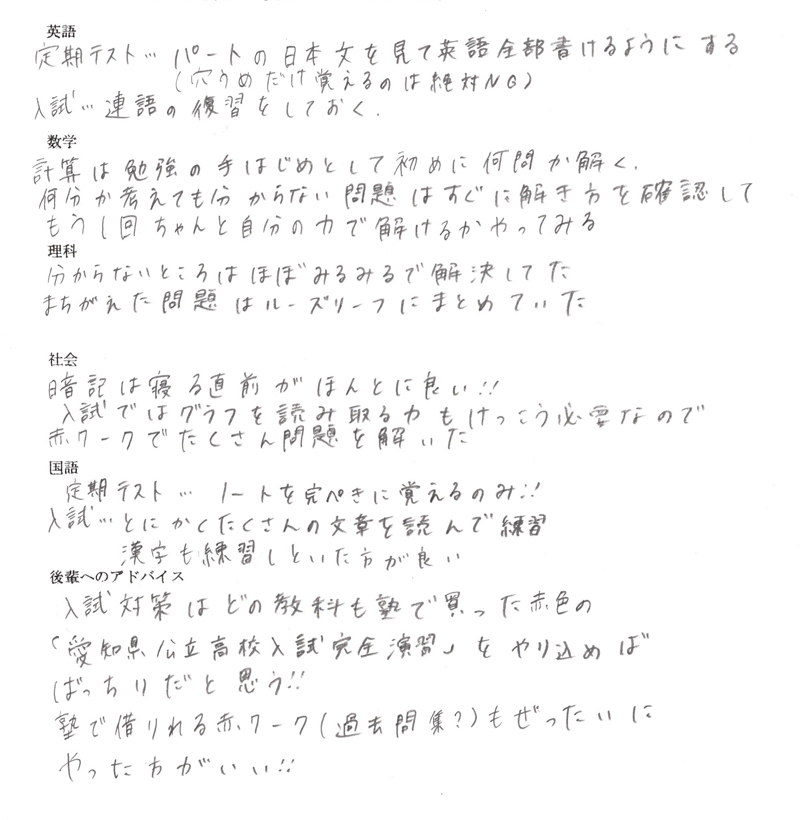 英語
定期テスト… パートの日本文を見て英語全部書けるようにする
(穴うめだけ覚えるのは絶対NG)
入試… 連語の復習をしておく.
数学
計算は勉強の手はじめとして初めに何問か解く.
何分か考えても分からない問題はすぐに解き方を確認して
もう1回ちゃんと自分の力で解けるかやってみる
理科
分からないところはほぼみるみるで解決してた
まちがえた問題はルーズリーフにまとめていた
社会
暗記は寝る直前がほんとに良い!!
入試ではグラフを読み取る力もけっこう必要なので
赤ワークでたくさん問題を解いた
国語
定期テスト… ノートを完ぺきに覚えるのみ!!
入試…とにかくたくさんの文章を読んで練習
漢字も練習しといた方が良い
後輩へのアドバイス
入試対策はどの教科も塾で買った赤色の
「愛知県公立高校入試完全演習」をやり込めば
ばっちりだと思う!!
塾で借りれる赤ワーク(過去問集?)もぜったいに
やった方がいい!!